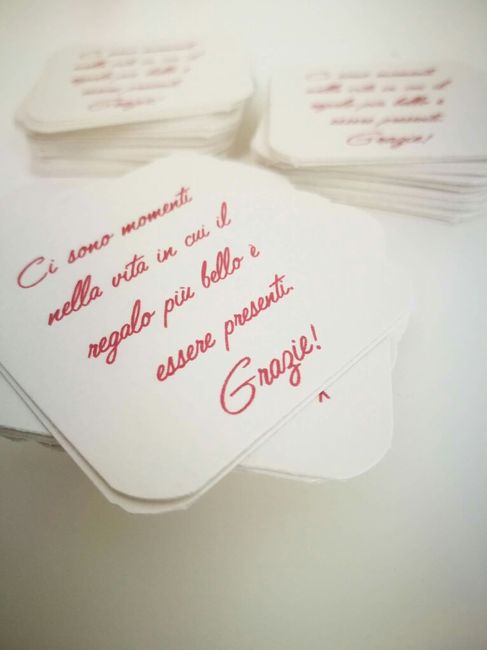 Ci sono momenti
nella vita in cui il
regalo più bello è
essere presenti.
Grazie!
Ci sono momenti
nella vita in cui il
regalo più bello è
essere presenti.
Grazie!
Ci sono momenti
nella vita in cui il
regalo più bello è
essere presenti.
Grazie!